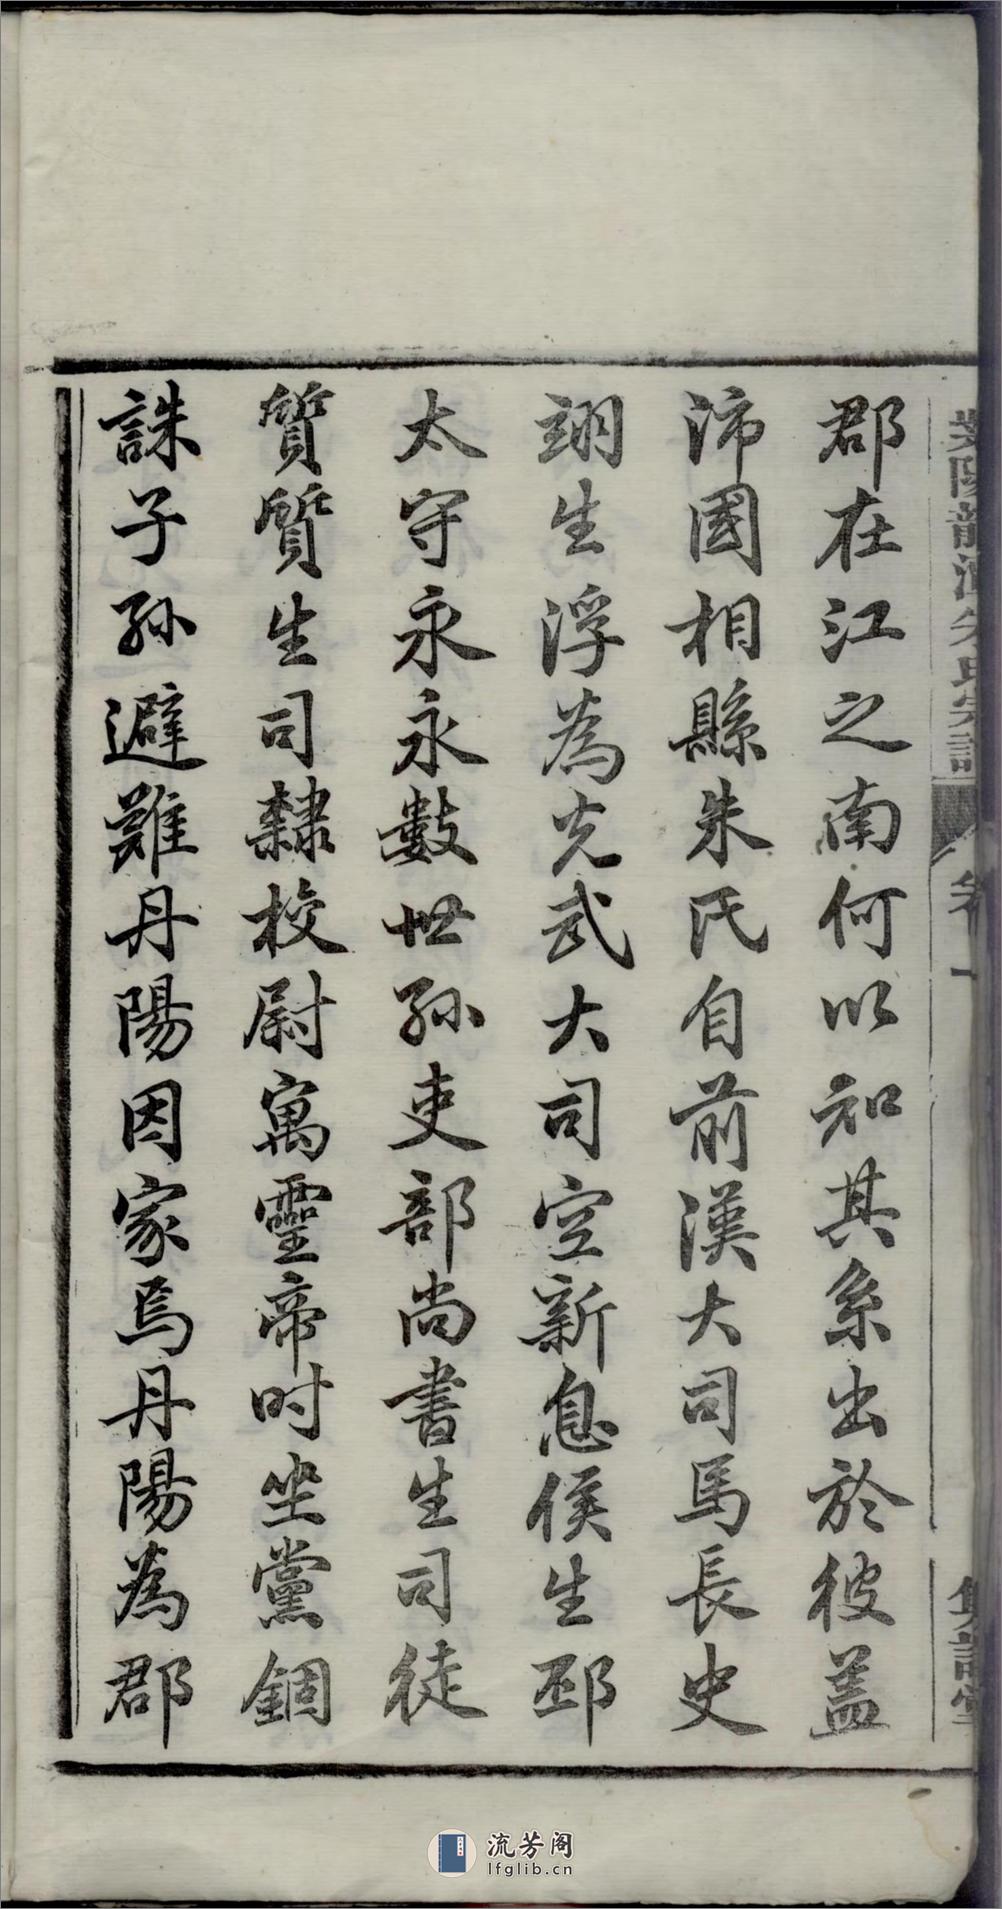 郡在江之南何以知其系出於彼蓋
沛國相縣朱氏自前漢大司馬長史
翊生浮為光武大司空新息侯生邳
太守永永數世孫吏部尚書生司徒
質質生司隸校尉寓靈帝时坐黨錮
誅子孫避難丹陽因家焉丹陽為郡
卷一
流芳阁
lfglib.cn